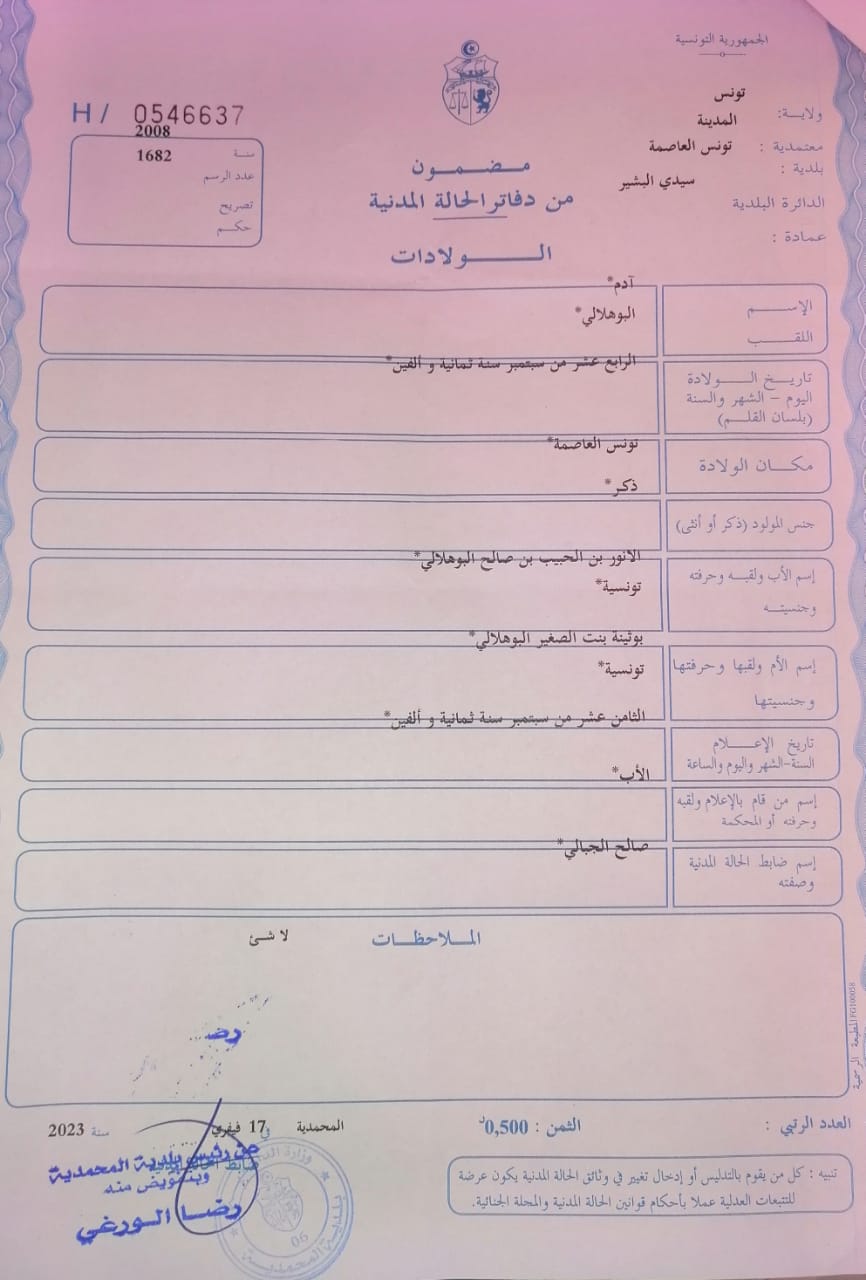 الجمهورية التونسية
ولاية: تونس
معتمدية : المدينة
بلدية : تونس العاصمة
الدائرة البلدية سيدي البشير
عمادة :
H / 0546637
سنة 2008
عدد الرسم 1682
تصريح
حكم
مضمون
من دفاتر الحالة المدنية
الولادات
الإسم آدم*
اللقب البوهلالي*
تاريخ الولادة الرابع عشر من سبتمبر سنة ثمانية و ألفين*
اليوم – الشهر والسنة
(بلسان القلم)
مكان الولادة تونس العاصمة*
جنس المولود (ذكر أو أنثى) ذكر*
إسم الأب ولقبه وحرفته الانور بن الحبيب بن صالح البوهلالي*
وجنسيته تونسية*
إسم الأم ولقبها وحرفتها بوثينة بنت الصغير البوهلالي*
وجنسيتها تونسية*
تاريخ الإعلام الثامن عشر من سبتمبر سنة ثمانية و ألفين*
السنة-الشهر واليوم والساعة
إسم من قام بالإعلام ولقبه الأب*
وحرفته أو المحكمة
إسم ضابط الحالة المدنية صالح الجبالي*
وصفته
الملاحظات
لا شئ
رضـ
المطبعة الرسمية FG100058
العدد الرتبي :
الثمن : 0,500د
المحمدية في 17 فيفري سنة 2023
ضابط الحالة المدنية
عن رئيس بلدية المحمدية
وبتفويض منه
رضا الورغي
بلدية المحمدية
06
تنبيه : كل من يقوم بالتدليس أو إدخال تغيير في وثائق الحالة المدنية يكون عرضة
للتتبعات العدلية عملا بأحكام قوانين الحالة المدنية والمجلة الجنائية.